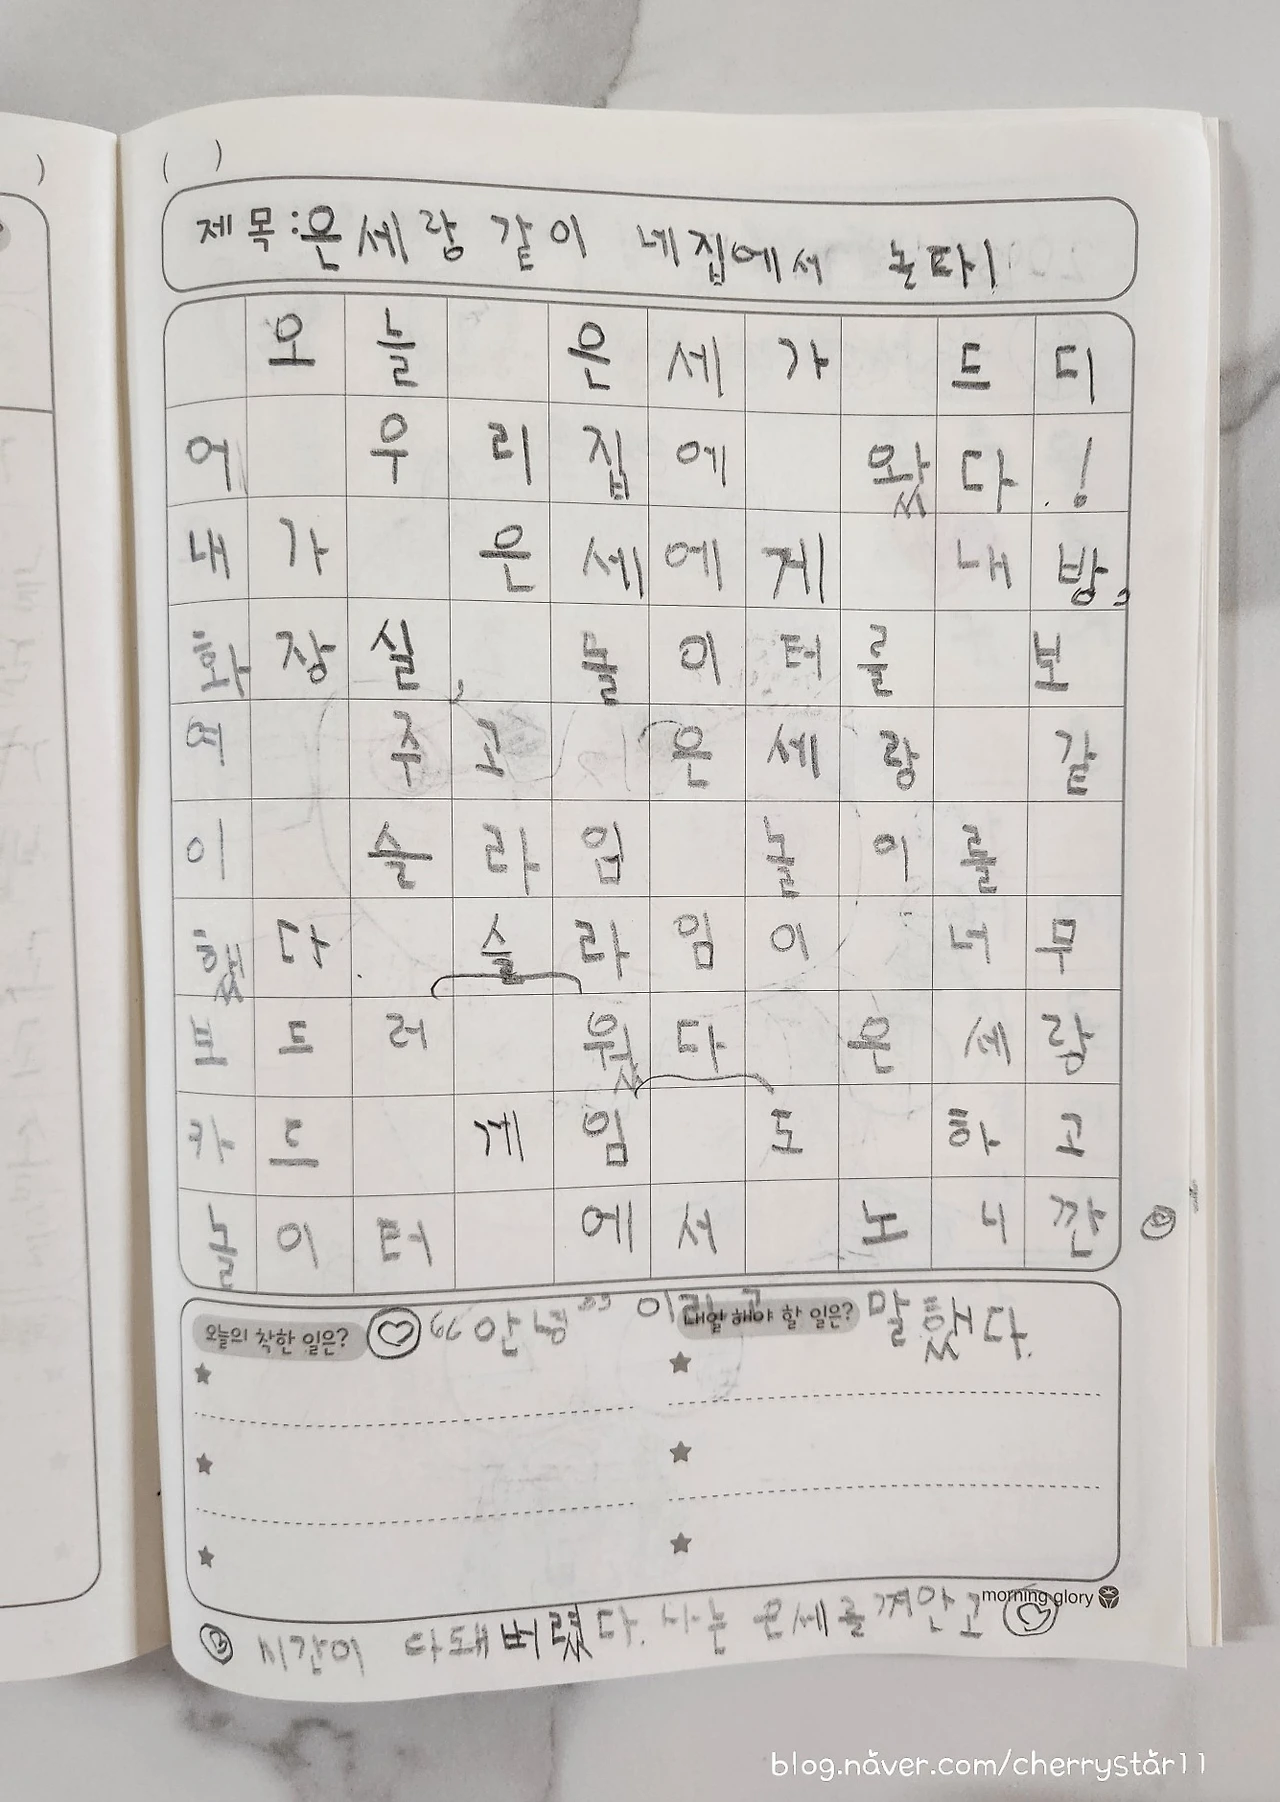 제목:은세랑 같이 네집에서 논타!
오늘 은세가 드디
어 우리집에 왔다!
내가 은세에게 내방,
화장실, 놀이터를 보
여 주고 은세랑 같
이 슬라임 놀이를
했다. 슬라임이 너무
보드러 웠다 은세랑
카드 게임 도 하고
놀이터 에서 노니깐
오늘의 착한 일은? "안녕" 이라고 말했다.
내일 해야 할 일은?
morning glory
시간이 다돼버렸다. 나는 은세를 껴안고
blog.naver.com/cherrystar11